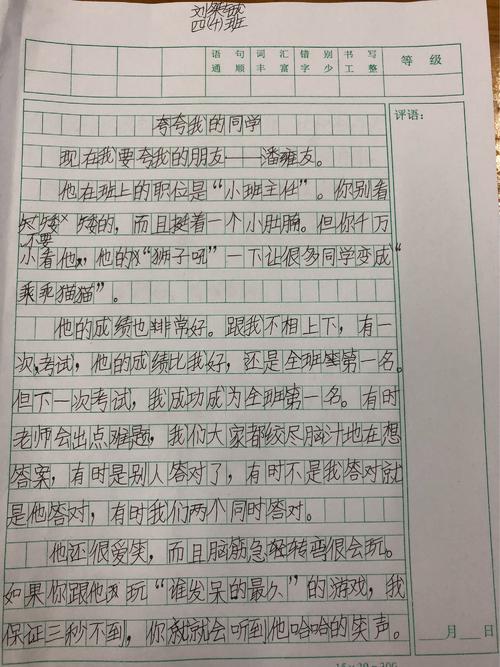 四(十)班
语句通顺 词汇丰富 错别字少 书写工整 等级
评语:
夸夸我的同学
现在我要夸我的朋友——潘雍友。
他在班上的职位是“小班主任”。你别看
矮矮的,而且挺着一个小肚腩。但你千万
不要
小看他,他的“狮子吼”一下让很多同学变成“
乖乖猫猫”。
他的成绩也非常好。跟我不相上下,有一
次,考试,他的成绩比我好,还是全班第一名。
但下一次考试,我成功成为全班第一名。有时
老师会出点难题,我们大家都绞尽脑汁地在想
答案,有时是别人答对了,有时不是我答对就
是他答对,有时我们两个同时答对。
他还很爱笑,而且脑筋急转弯很会玩。
如果你跟他玩“谁发呆的最久”的游戏,我
保证三秒不到,你就会听到他哈哈的笑声。
月 日
15×20=300